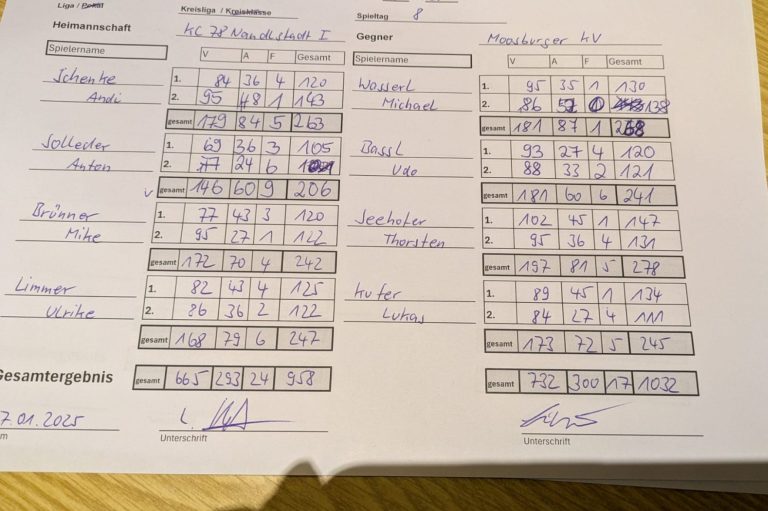 Liga / Pokal Kreisliga / Kreisklasse Spieltag 8
Heimannschaft KC 78 Nandlstadt I Gegner Moosburger KV
Spielername V A F Gesamt Spielername V A F Gesamt
Schenke 1. 84 36 4 120 Wasserl 1. 95 35 1 130
Andi 2. 95 48 1 143 Michael 2. 86 52 0 138
gesamt 179 84 5 263 gesamt 181 87 1 268
Solleder 1. 69 36 3 105 Bassl 1. 93 27 4 120
Anton 2. 77 24 6 101 Udo 2. 88 33 2 121
gesamt 146 60 9 206 gesamt 181 60 6 241
Brünner 1. 77 43 3 120 Seehofer 1. 102 45 1 147
Mike 2. 95 27 1 122 Thorsten 2. 95 36 4 131
gesamt 172 70 4 242 gesamt 197 81 5 278
Limmer 1. 82 43 4 125 Kufer 1. 89 45 1 134
Ulrike 2. 86 36 2 122 Lukas 2. 84 27 4 111
gesamt 168 79 6 247 gesamt 173 72 5 245
Gesamtergebnis gesamt 665 293 24 958 gesamt 732 300 17 1032
7.01.2025
Unterschrift Unterschrift